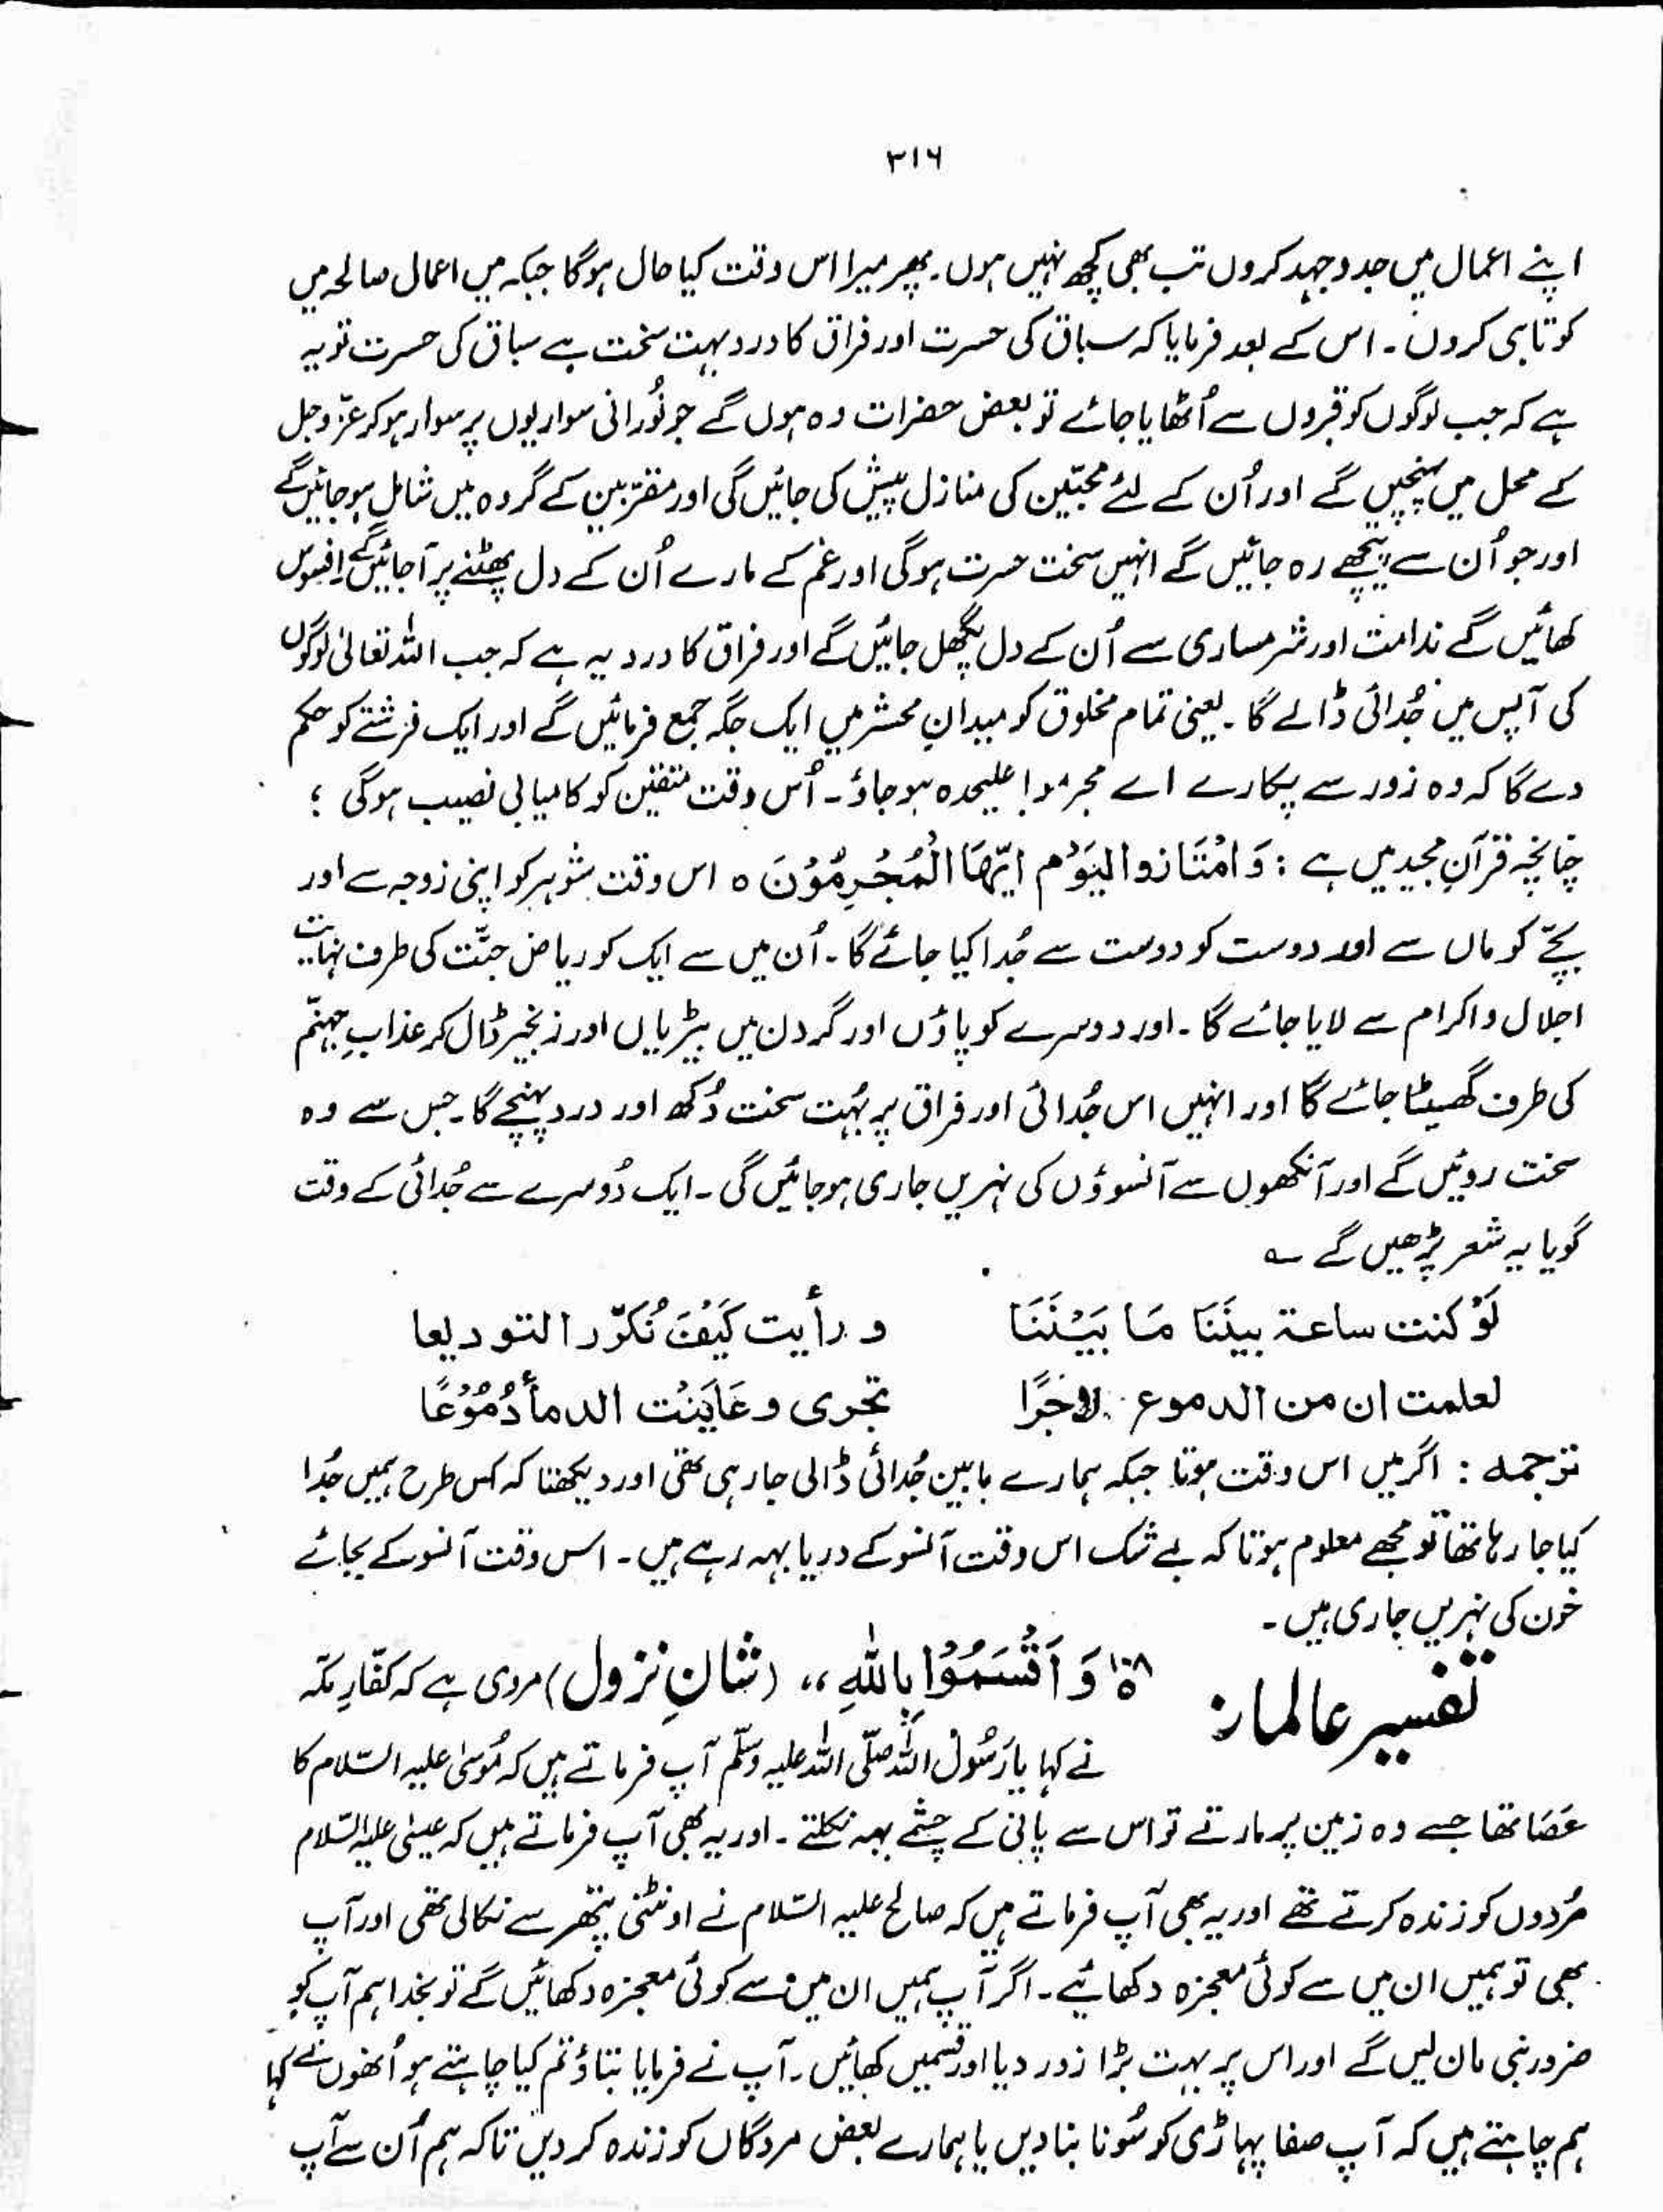 ۳۱۶
اپنے اعمال میں جدوجہد کروں تب بھی کچھ نہیں ہوں۔ پھر میرا اس وقت کیا حال ہوگا جبکہ میں اعمال صالحہ میں
کوتاہی کروں۔ اس کے بعد فرمایا کہ سباق کی حسرت اور فراق کا درد بہت سخت ہے سباق کی حسرت تو یہ
ہے کہ جب لوگوں کو قبروں سے اُٹھایا جائے تو بعض حضرات وہ ہوں گے جو نُورانی سواریوں پر سوار ہو کر عزّ وجل
کے محل میں پہنچیں گے اور اُن کے لئے محبّین کی منازل پیش کی جائیں گی اور مقرّبین کے گروہ میں شامل ہوجائیں گے
اور جو اُن سے پیچھے رہ جائیں گے انہیں سخت حسرت ہوگی اور غم کے مارے اُن کے دل پھٹنے پر آجائیں گے افسوس
کھائیں گے ندامت اور شرمساری سے اُن کے دل پگھل جائیں گے اور فراق کا درد یہ ہے کہ جب اللہ تعالیٰ لوگوں
کی آپس میں جُدائی ڈالے گا۔ یعنی تمام مخلوق کو میدانِ محشر میں ایک جگہ جمع فرمائیں گے اور ایک فرشتے کو حکم
دے گا کہ وہ زور سے پکارے اے مجرمو! علیحدہ ہو جاؤ۔ اُس وقت متقین کو کامیابی نصیب ہوگی ؛
چنانچہ قرآنِ مجید میں ہے : وَامْتَازوا الیَوْم ایّھَا الْمُجْرِمُوْنَ ہ اس وقت شوہر کو اپنی زوجہ سے اور
بچّے کو ماں سے اور دوست کو دوست سے جُدا کیا جائے گا۔ اُن میں سے ایک کو ریاض جنّت کی طرف نہایت
اجلال و اکرام سے لایا جائے گا۔ اور دوسرے کو پاؤں اور گردن میں بیڑیاں اور زنجیر ڈال کر عذابِ جہنّم
کی طرف گھسیٹا جائے گا اور انہیں اس جُدائی اور فراق پر بہُت سخت دُکھ اور درد پہنچے گا۔ جس سے وہ
سخت روئیں گے اور آنکھوں سے آنسوؤں کی نہریں جاری ہوجائیں گی۔ ایک دُوسرے سے جُدائی کے وقت
گویا یہ شعر پڑھیں گے ؎
لَوْ کنت ساعة بینَنَا مَا بَیْنَنَا و رأیت کَیْفَ نُکَرّر التودیعا
لعلمت ان من الدموع لاخَرًا تجری و عَایَنْت الدمأدُمُوْعًا
ترجمہ : اگر میں اس وقت ہوتا جبکہ ہمارے مابین جُدائی ڈالی جا رہی تھی اور دیکھتا کہ کس طرح ہمیں جُدا
کیا جا رہا تھا تو مجھے معلوم ہوتا کہ بے شک اس وقت آنسو کے دریا بہہ رہے ہیں۔ اس وقت آنسو کے بجائے
خون کی نہریں جاری ہیں۔
تفسیر عالمانہ ۱۰۸ وَ اَقْسَمُوْا بِاللّٰهِ ،، (شانِ نزول) مروی ہے کہ کفّارِ مکّہ
نے کہا یا رَسُول اللّٰہ صلّی اللّٰہ علیہ وسلّم آپ فرماتے ہیں کہ مُوسیٰ علیہ السّلام کا
عَصَا تھا جسے وہ زمین پر مارتے تو اس سے پانی کے چشمے بہہ نکلتے۔ اور یہ بھی آپ فرماتے ہیں کہ عیسیٰ علیہ السّلام
مُردوں کو زندہ کرتے تھے اور یہ بھی آپ فرماتے ہیں کہ صالح علیہ السّلام نے اونٹنی پتّھر سے نکالی تھی اور آپ
بھی تو ہمیں ان میں سے کوئی معجزہ دکھائیے۔ اگر آپ ہمیں ان میں سے کوئی معجزہ دکھائیں گے تو بخدا ہم آپ کو
ضرور نبی مان لیں گے اور اس پر بہت بڑا زور دیا اور قسمیں کھائیں۔ آپ نے فرمایا بتاؤ تم کیا چاہتے ہو اُنھوں نے کہا
ہم چاہتے ہیں کہ آپ صفا پہاڑی کو سُونا بنا دیں یا ہمارے بعض مردگاں کو زندہ کر دیں تاکہ ہم اُن سے آپ